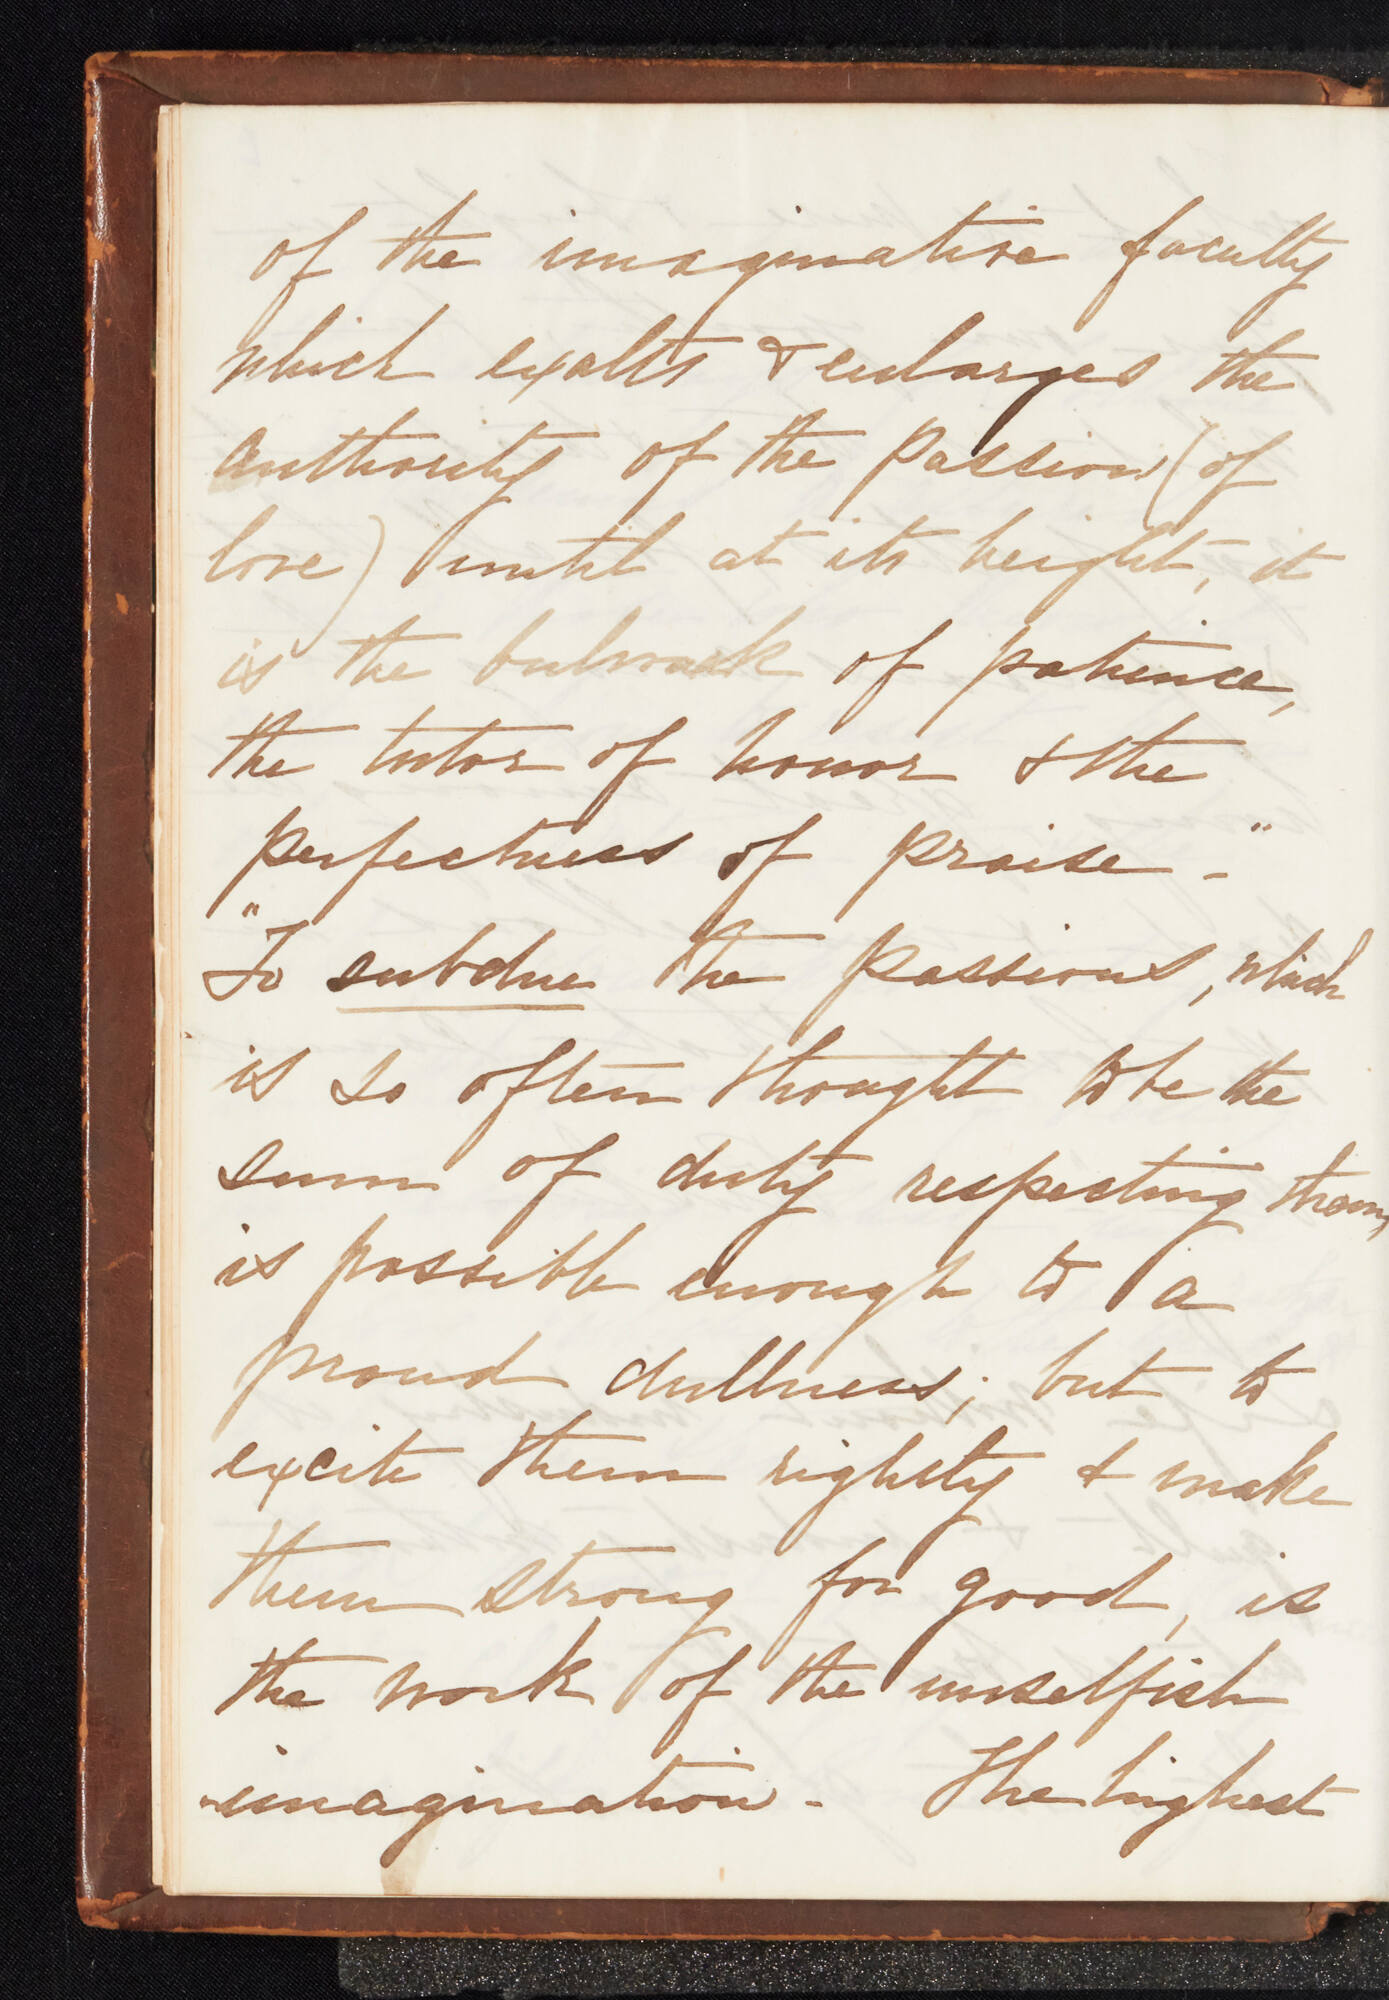 of the imaginative faculty
which exalts & enlarges the
authority of the passion (of
love) until at its height, it
is the bulwark of patience,
the tutor of honor & the
perfectness of praise - "
"To subdue the passions, which
is so often thought to be the
sum of duty respecting them,
is possible enough to a
proud dullness; but to
excite them rightly & make
them strong for good, is
the work of the unselfish
imagination - The highest